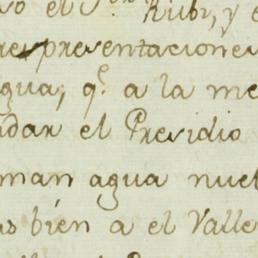 o el S.or Rubi, y e
representaciones
gua, q.e a la me
dar el Presidio
man agua nue
s bién a el Valle